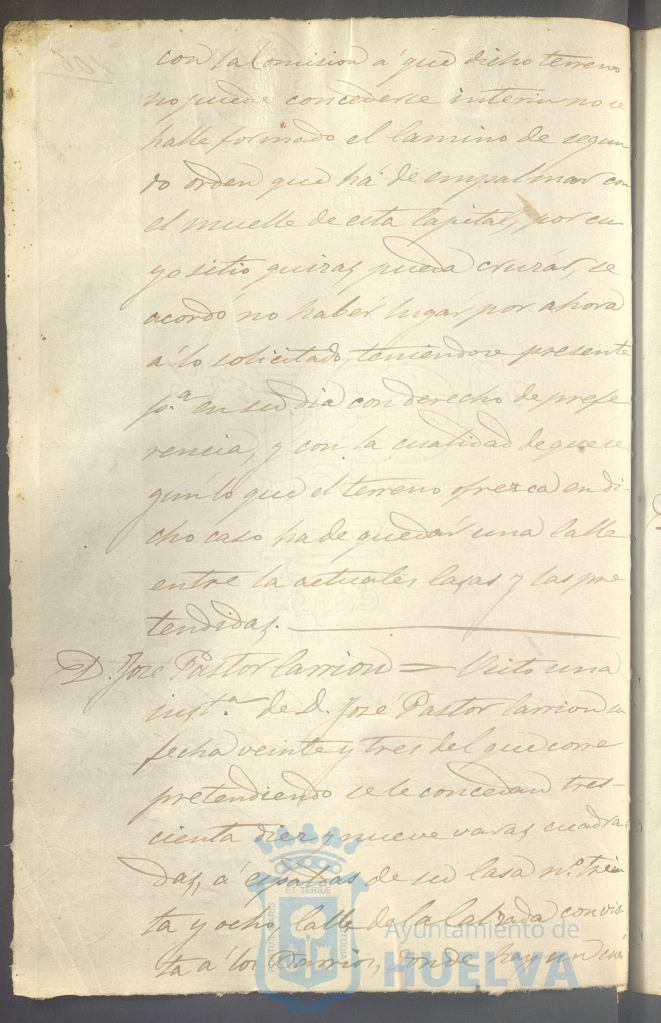 con la Comision á que dicho terreno
no puede concederse interin no se
halle formado el Camino de segun
do orden que há de empalmar con
el muelle de esta Capital, por cu
yo sitio quizas pueda cruzár, se
acordó no haber lugar por ahora
á lo solicitado, teniendose presente
pª. en su dia con derecho de prefe
rencia, y con la cualidad de que se
gún lo que el terreno ofrezca en di-
cho caso ha de quedár una Calle
entre la actuales Casas y las pre
tendidas.
D. José Pastor Carrion = Visto una
instª. de D. José Pastor Carrion su
fecha veinte y tres del que corre
pretendiendo se le concedan tres-
cienta diez y nueve varas cuadra-
das, á espaldas de su Casa nº. trein
ta y ocho, Calle de la Calzada con vis
ta a los Barrios, donde hay un
Ayuntamiento de
HUELVA
PORTUS MARIS
ET TERRAE
CUSTODIA